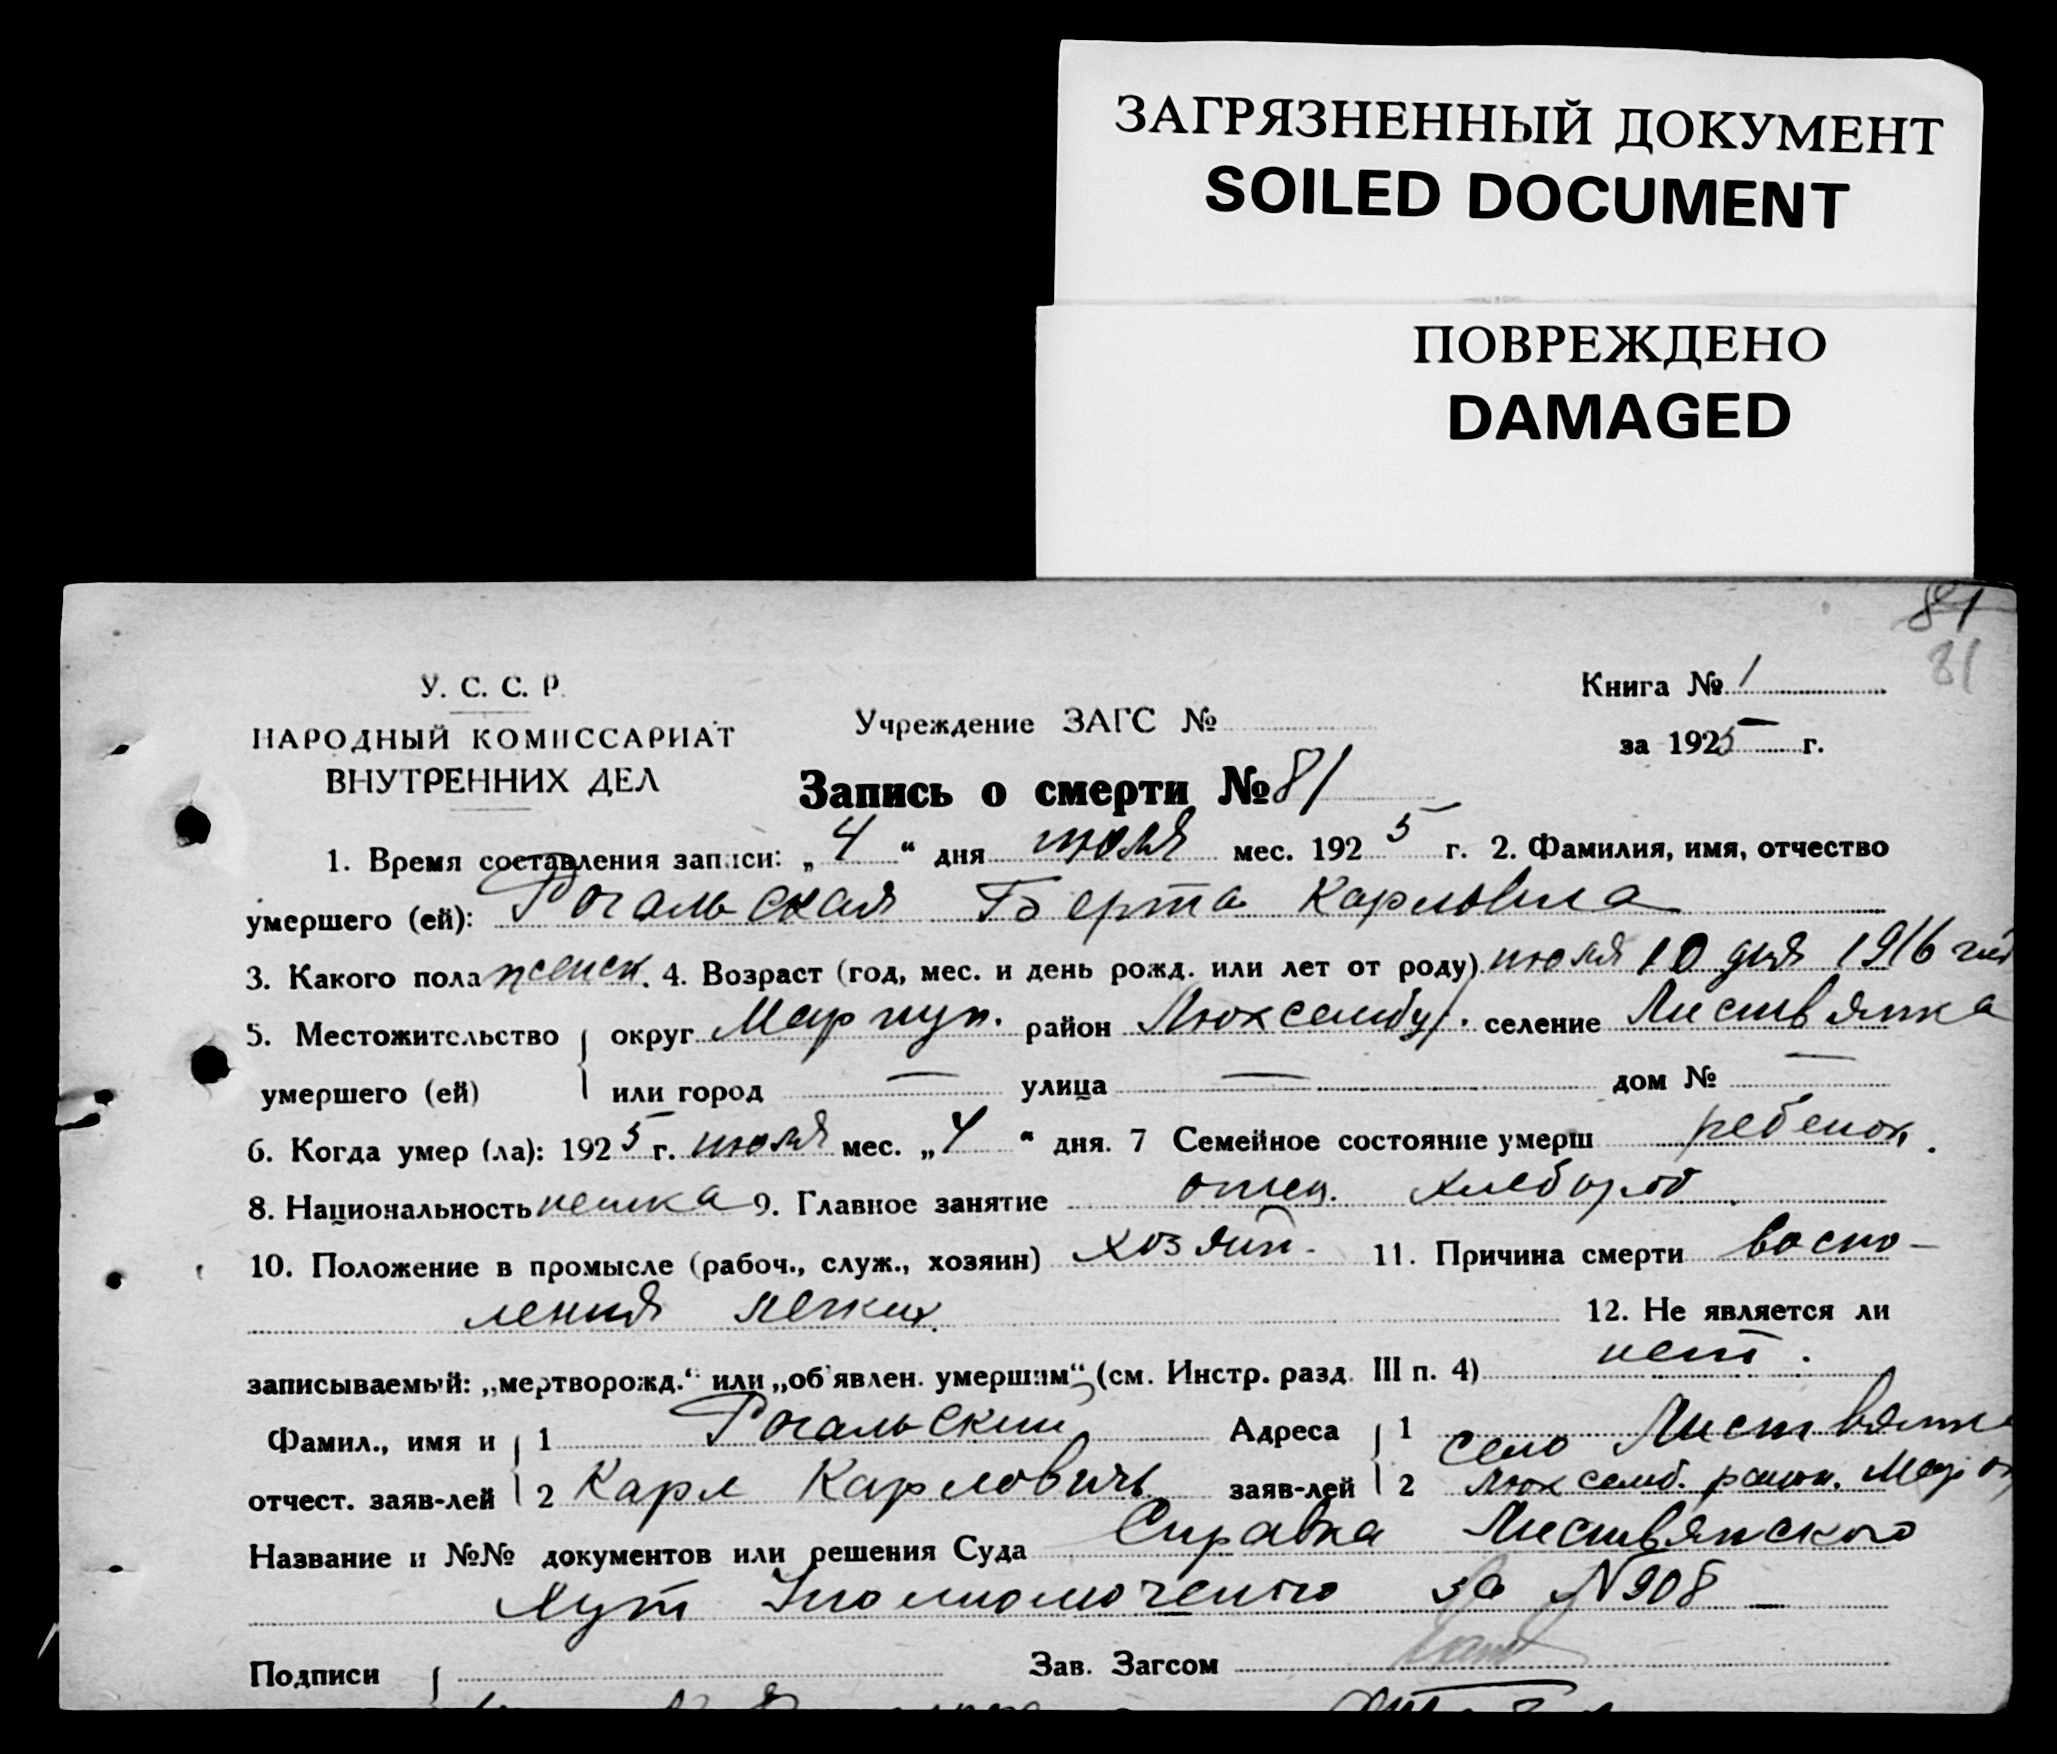 ЗАГРЯЗНЕННЫЙ ДОКУМЕНТ
SOILED DOCUMENT
ПОВРЕЖДЕНО
DAMAGED
81
81
У. С. С. Р.
НАРОДНЫЙ КОМИССАРИАТ
ВНУТРЕННИХ ДЕЛ
Учреждение ЗАГС №
Книга № 1
за 1925 г.
Запись о смерти № 81
1. Время составления записи: „4“ дня июля мес. 1925 г. 2. Фамилия, имя, отчество
умершего (ей): Рогальская Берта Карловна
3. Какого пола женск. 4. Возраст (год, мес. и день рожд. или лет от роду) июля 10 дня 1916
5. Местожительство округ Мариуп. район Люксембур. селение Листвянка
умершего (ей) или город — улица — дом № —
6. Когда умер (ла): 1925 г. июля мес. „4“ дня. 7 Семейное состояние умерш ребенок.
8. Национальность немка 9. Главное занятие отец. хлебороб
10. Положение в промысле (рабоч., служ., хозяин) хозяин. 11. Причина смерти воспо-
ления легких.
12. Не является ли
записываемый: „мертворожд.“ или „об'явлен. умершим“ (см. Инстр. разд. III п. 4) нет.
Фамил., имя и 1 Рогальский Адреса 1 село Листвянка
отчест. заяв-лей 2 Карл Карлович заяв-лей 2 Люксемб. район.
Название и №№ документов или решения Суда Справка Листвянского
Уполномоченого за №908 —
Подписи Зав. Загсом